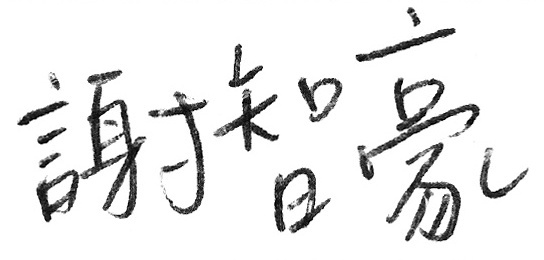 謝智豪